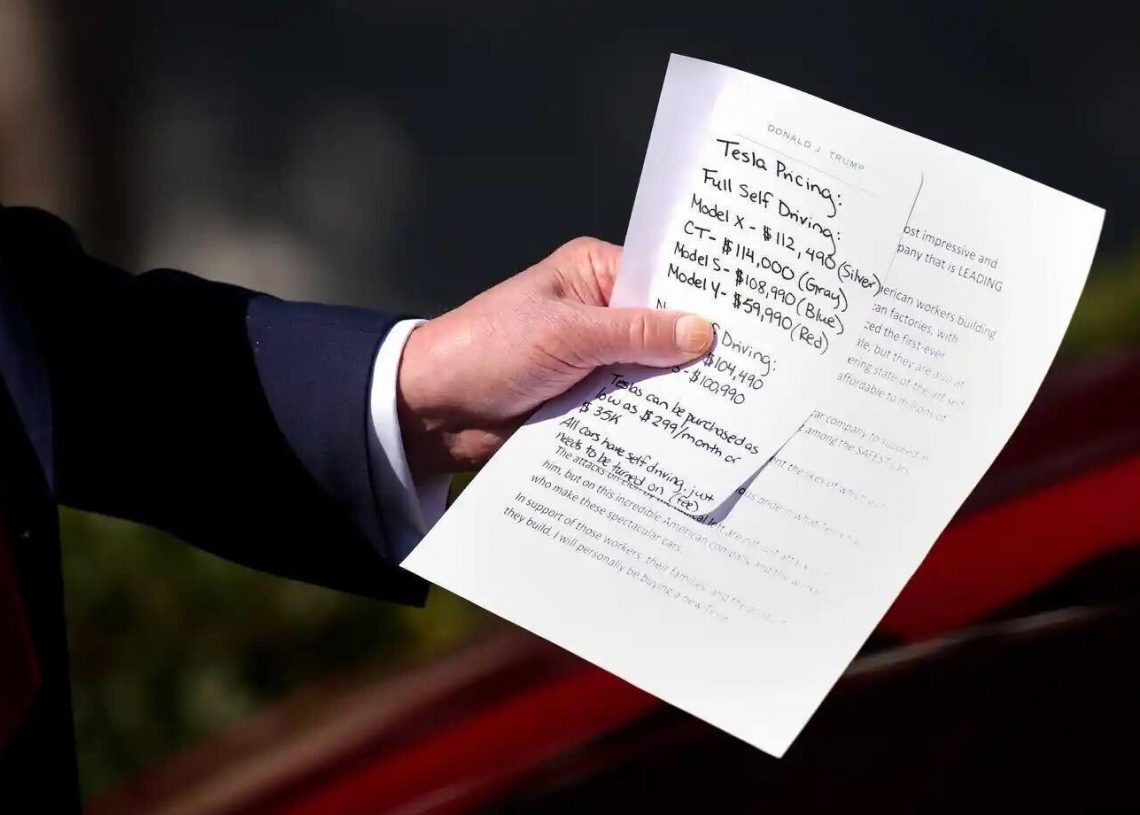 DONALD J. TRUMP
Tesla Pricing:
Full Self Driving:
Model X - $112,490 (Silver)
CT - $114,000 (Gray)
Model S - $108,990 (Blue)
Model Y - $59,990 (Red)
Driving:
$104,490
- $100,990
Teslas can be purchased as
low as $299/month or
$35K
All cars have self driving, just
needs to be turned on (fee)
ost impressive and
pany that is LEADING
erican workers building
an factories, with
ced the first-ever
ale, but they are also at
ering state-of-the-art self
affordable to millions of
ar company to succeed in
among the SAFEST
ent the likes of which our
ous pride in what
The attacks on are not just attacks
him, but on this incredible American company, and the workers
who make these spectacular cars.
In support of those workers, their families, and the
they build, I will personally be buying a new